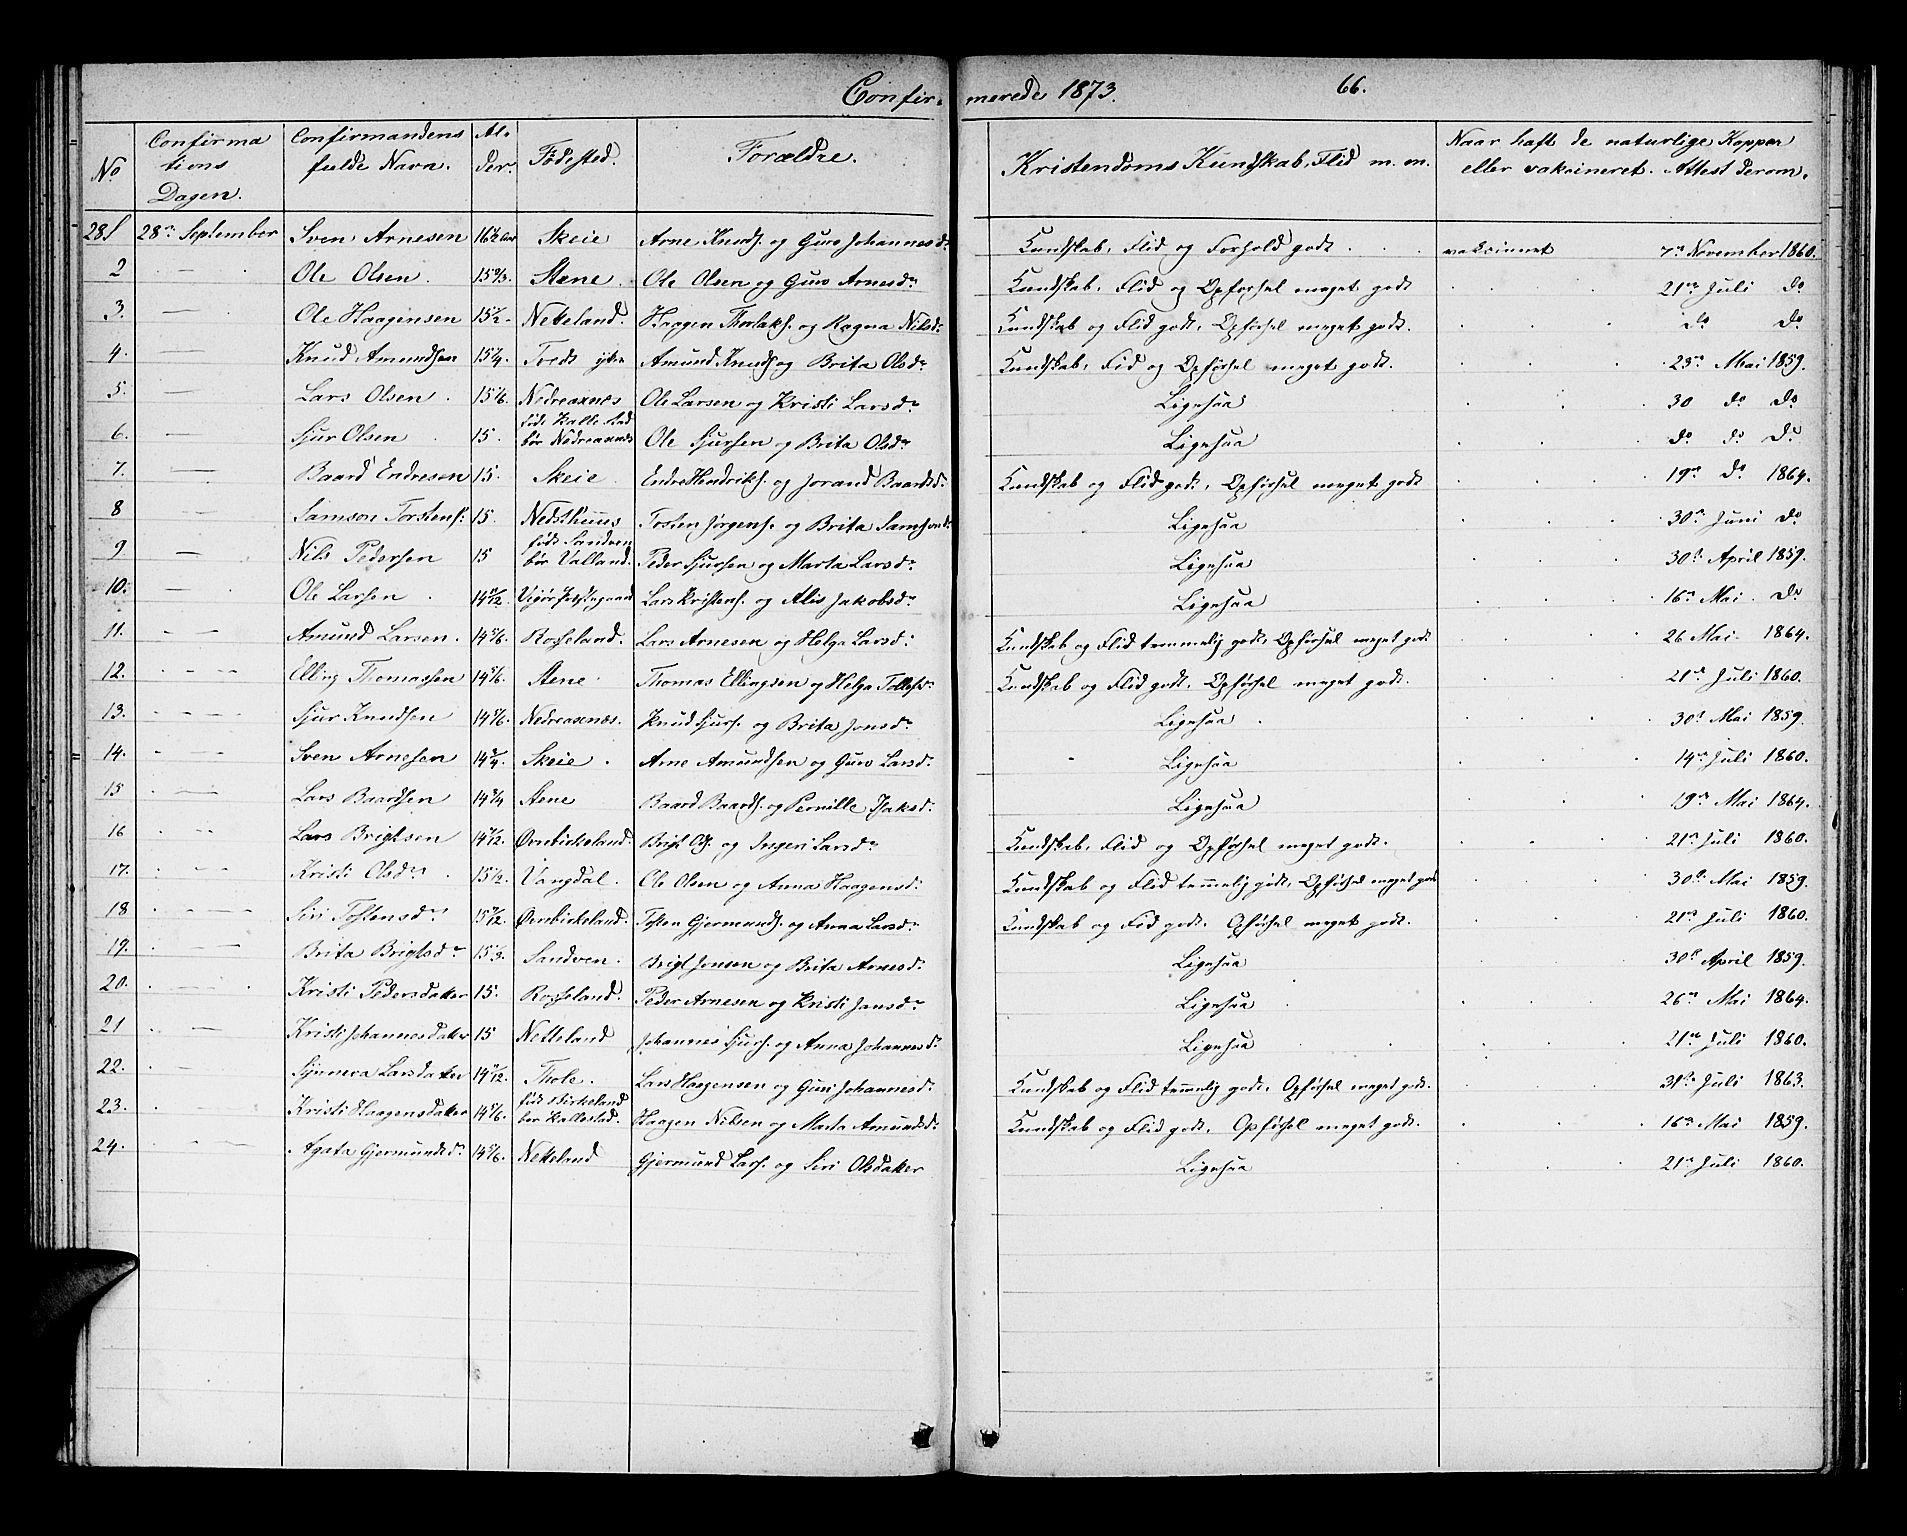 Confirmerede 1873. 66.
No Confirmationsdagen. Confirmandens fulde Navn. Alder. Fødested. Forældre. Kristendoms Kundskab, Flid m. m. Naar haft de naturlige Kopper eller vaksineret. Attest derom.
28 September Sven Arnesen 16½ Aar Skeie Arne Knuds. og Guro Johannesd. Kundskab, Flid og Forhold godt vaksinnet 7de November 1860.
2 Ole Olsen. Stene. Ole Olsen og Guro Arnesdr Kundskab, Flid og Opførsel meget godt 21de Juli do
3. Ole Haagensen 15½ Netteland. Haagen Thorlaks. og Ragna Nilsdr Kundskab og Flid godt, Opførsel meget godt. do do
4. Knud Amundsen 15¼. Amund Knuds. og Brita Olsdr Kundskab, Flid og Opførsel meget godt. 23de Mai 1859.
5. Lars Olsen. 15 1/6. Nedreaxnes Ole Larsen og Kristi Larsdr Ligesaa 30 do do
6. Sjur Olsen 15. født Kallestad bor Nedreaxnes Ole Sjursen og Brita Olsdr Ligesaa do do do
7. Baard Endresen 15. Skeie. Endre Hendriks. og Jorand Baardsd. Kundskab og Flid godt, Opførsel meget godt 19de do 1864.
8 Samson Torstens. 15. Nedsthuus Tosten Jørgens. og Brita Samsonsd. Ligesaa 30te Juni do
9 Nils Pedersen 15 født Sandven bor Valland. Peder Sjursen og Marta Larsdr Ligesaa 30te April 1859.
10. Ole Larsen. Lars Kristens. og Alis Jakobsdr Ligesaa 16de Mai. do
11. Amund Larsen. 14 5/6. Rosseland. Lars Arnesen og Helga Larsd. Kundskab og Flid temmelig godt, Opførsel meget godt 26 Mai 1864.
12. Elling Thomassen 14 5/6. Aene. Thomas Ellingsen og Helga Kundskab og Flid godt, Opførsel meget godt. 21de Juli 1860.
13. Sjur Knudsen 14 5/6. Nedreaxnæs. Knud Sjurs. og Brita Jonsdr Ligesaa 30te Mai 1859.
14. Sven Arnesen 14¾. Skeie. Arne Amundsen og Guro Larsd. Ligesaa 14de Juli 1860.
15 Lars Baardsen 14¾ Aene Baard Baards. og Pernille Isaksd. Ligesaa 19de Mai 1864.
16 Lars Brigtsen 14 7/12. Øvrebirkeland. Brigt Ols. og Ingeri Larsdr Kundskab, Flid og Opførsel meget godt. 21de Juli 1860.
17. Kristi Olsdr. 15½. Vangdal. Ole Olsen og Anna Haagensd. Kundskab og Flid temmelig godt, Opførsel meget godt 30te Mai 1859.
18 Siri Tostensdr 15 7/12. Øvrebirkeland. Tosten Gjermunds. og Anna Larsdr Kundskab og Flid godt. Opførsel meget godt. 21de Juli 1860.
19. Brita Brigtsdr 15⅓. Sandven. Brigt Jonsen og Brita Arnesdr Ligesaa 30te April 1859.
20. Kristi Pedersdatter 15. Rosseland. Peder Arnesen og Kristi Jonsdr Ligesaa 26de Mai 1864.
21 Kristi Johannesdatter 15 Netteland Johannes Sjurs. og Anna Johannesdr Ligesaa 21de Juli 1860.
22. Synneva Larsdatter 14 7/12. Thole. Lars Haagensen og Guri Johannesd. Kundskab og Flid temmelig godt, Opførsel meget godt. 31te Juli 1863.
23. Kristi Haagensdatter 14 5/6. født Birkeland bor Kallestad. Haagen Nilsen og Marta Amundsd. Kundskab og Flid godt, Opførsel meget godt. 16de Mai 1859.
24. Agata Gjermundsdr 14 5/6. Netteland Gjermund Lars. og Siri Olsdatter Ligesaa 21de Juli 1860.